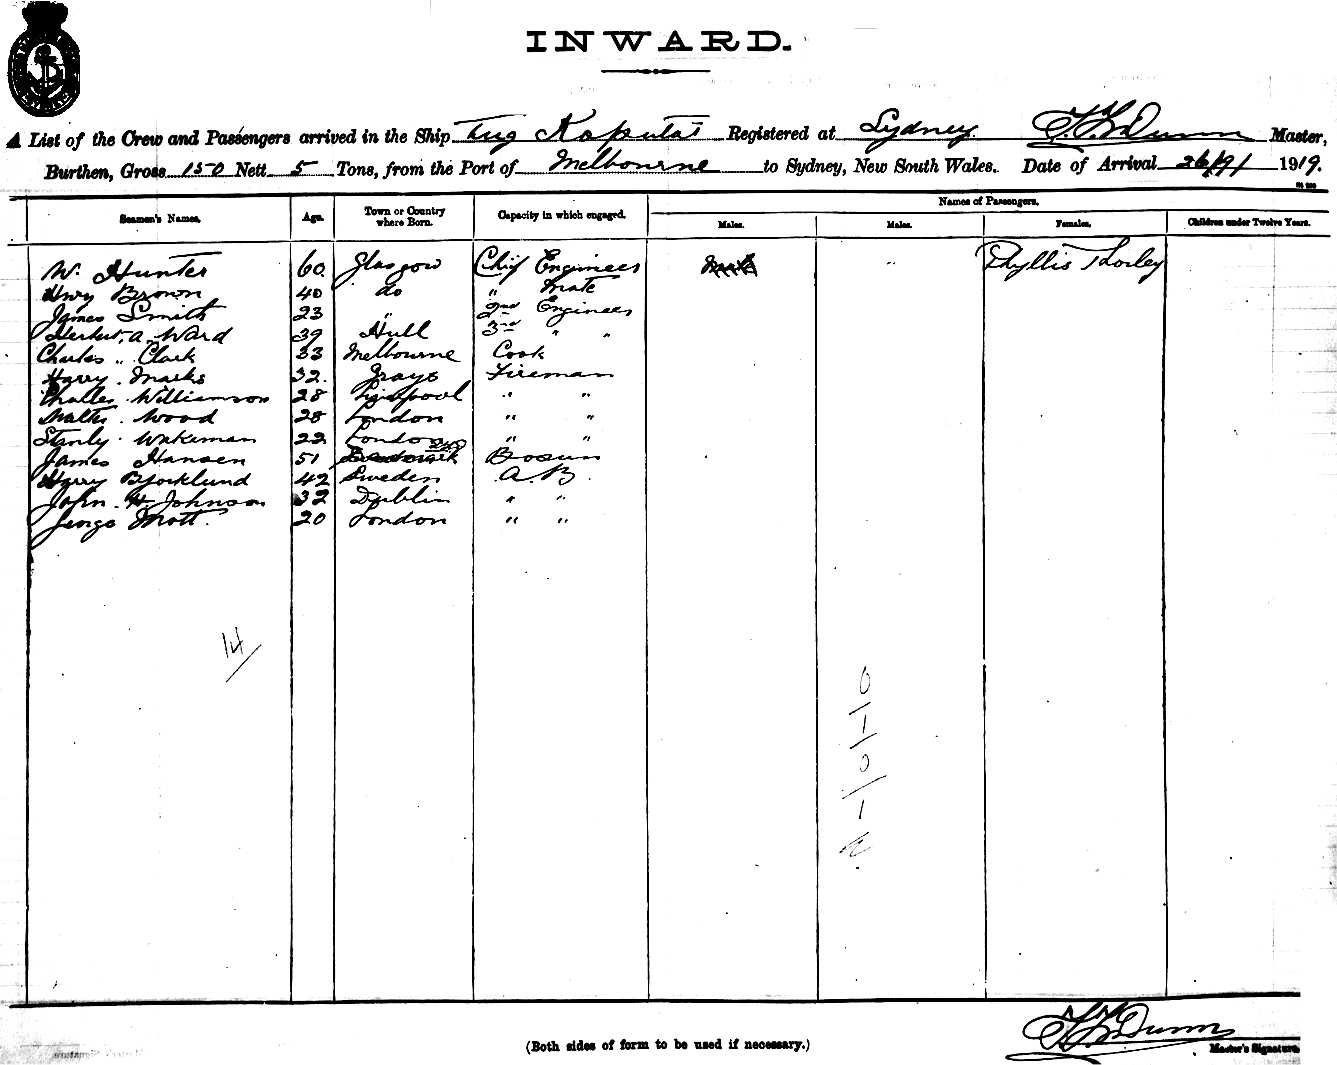 INWARD.
A List of the Crew and Passengers arrived in the Ship Tug Koputai Registered at Sydney Master,
Burthen, Gross 150 Nett 5 Tons, from the Port of Melbourne to Sydney, New South Wales. Date of Arrival 1919.
Names of Passengers.
Seamen's Names. Age. Town or Country where Born. Capacity in which engaged. Males. Males. Females. Children under Twelve Years.
W. Hunter 60 Glasgow Chief Engineer Phyllis Thorley
Henry Brown 40 do " Mate
James Smith 23 " 2nd Engineer
Herbert. A. Ward 39 Hull 3rd " "
Charles " Clark 33 Melbourne Cook
Harry. Marks 32. Grays Fireman
Charles. Williamson 28 Liverpool " "
Walter. Wood 28 London " "
Stanly. Wakeman 22 London " "
James Hansen 51 Bosun
Harry Bjorklund 42 Sweden A.B.
John. H. Johnson 32 Dublin " "
George Mott. 20 London " "
14
(Both sides of form to be used if necessary.)
Master's Signature.